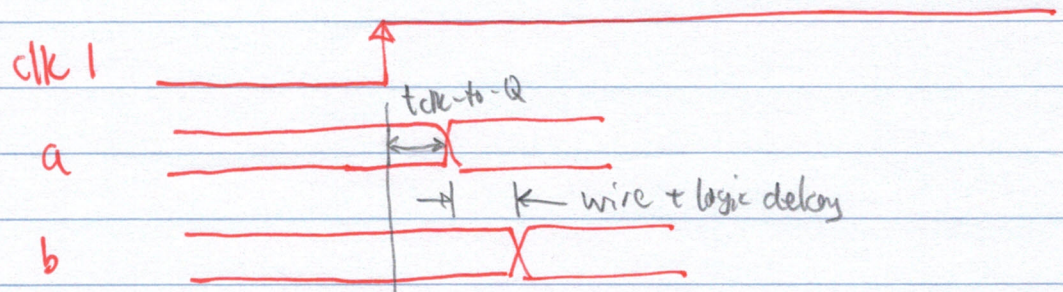 clk 1
tclk-to-Q
a
wire + logic delay
b